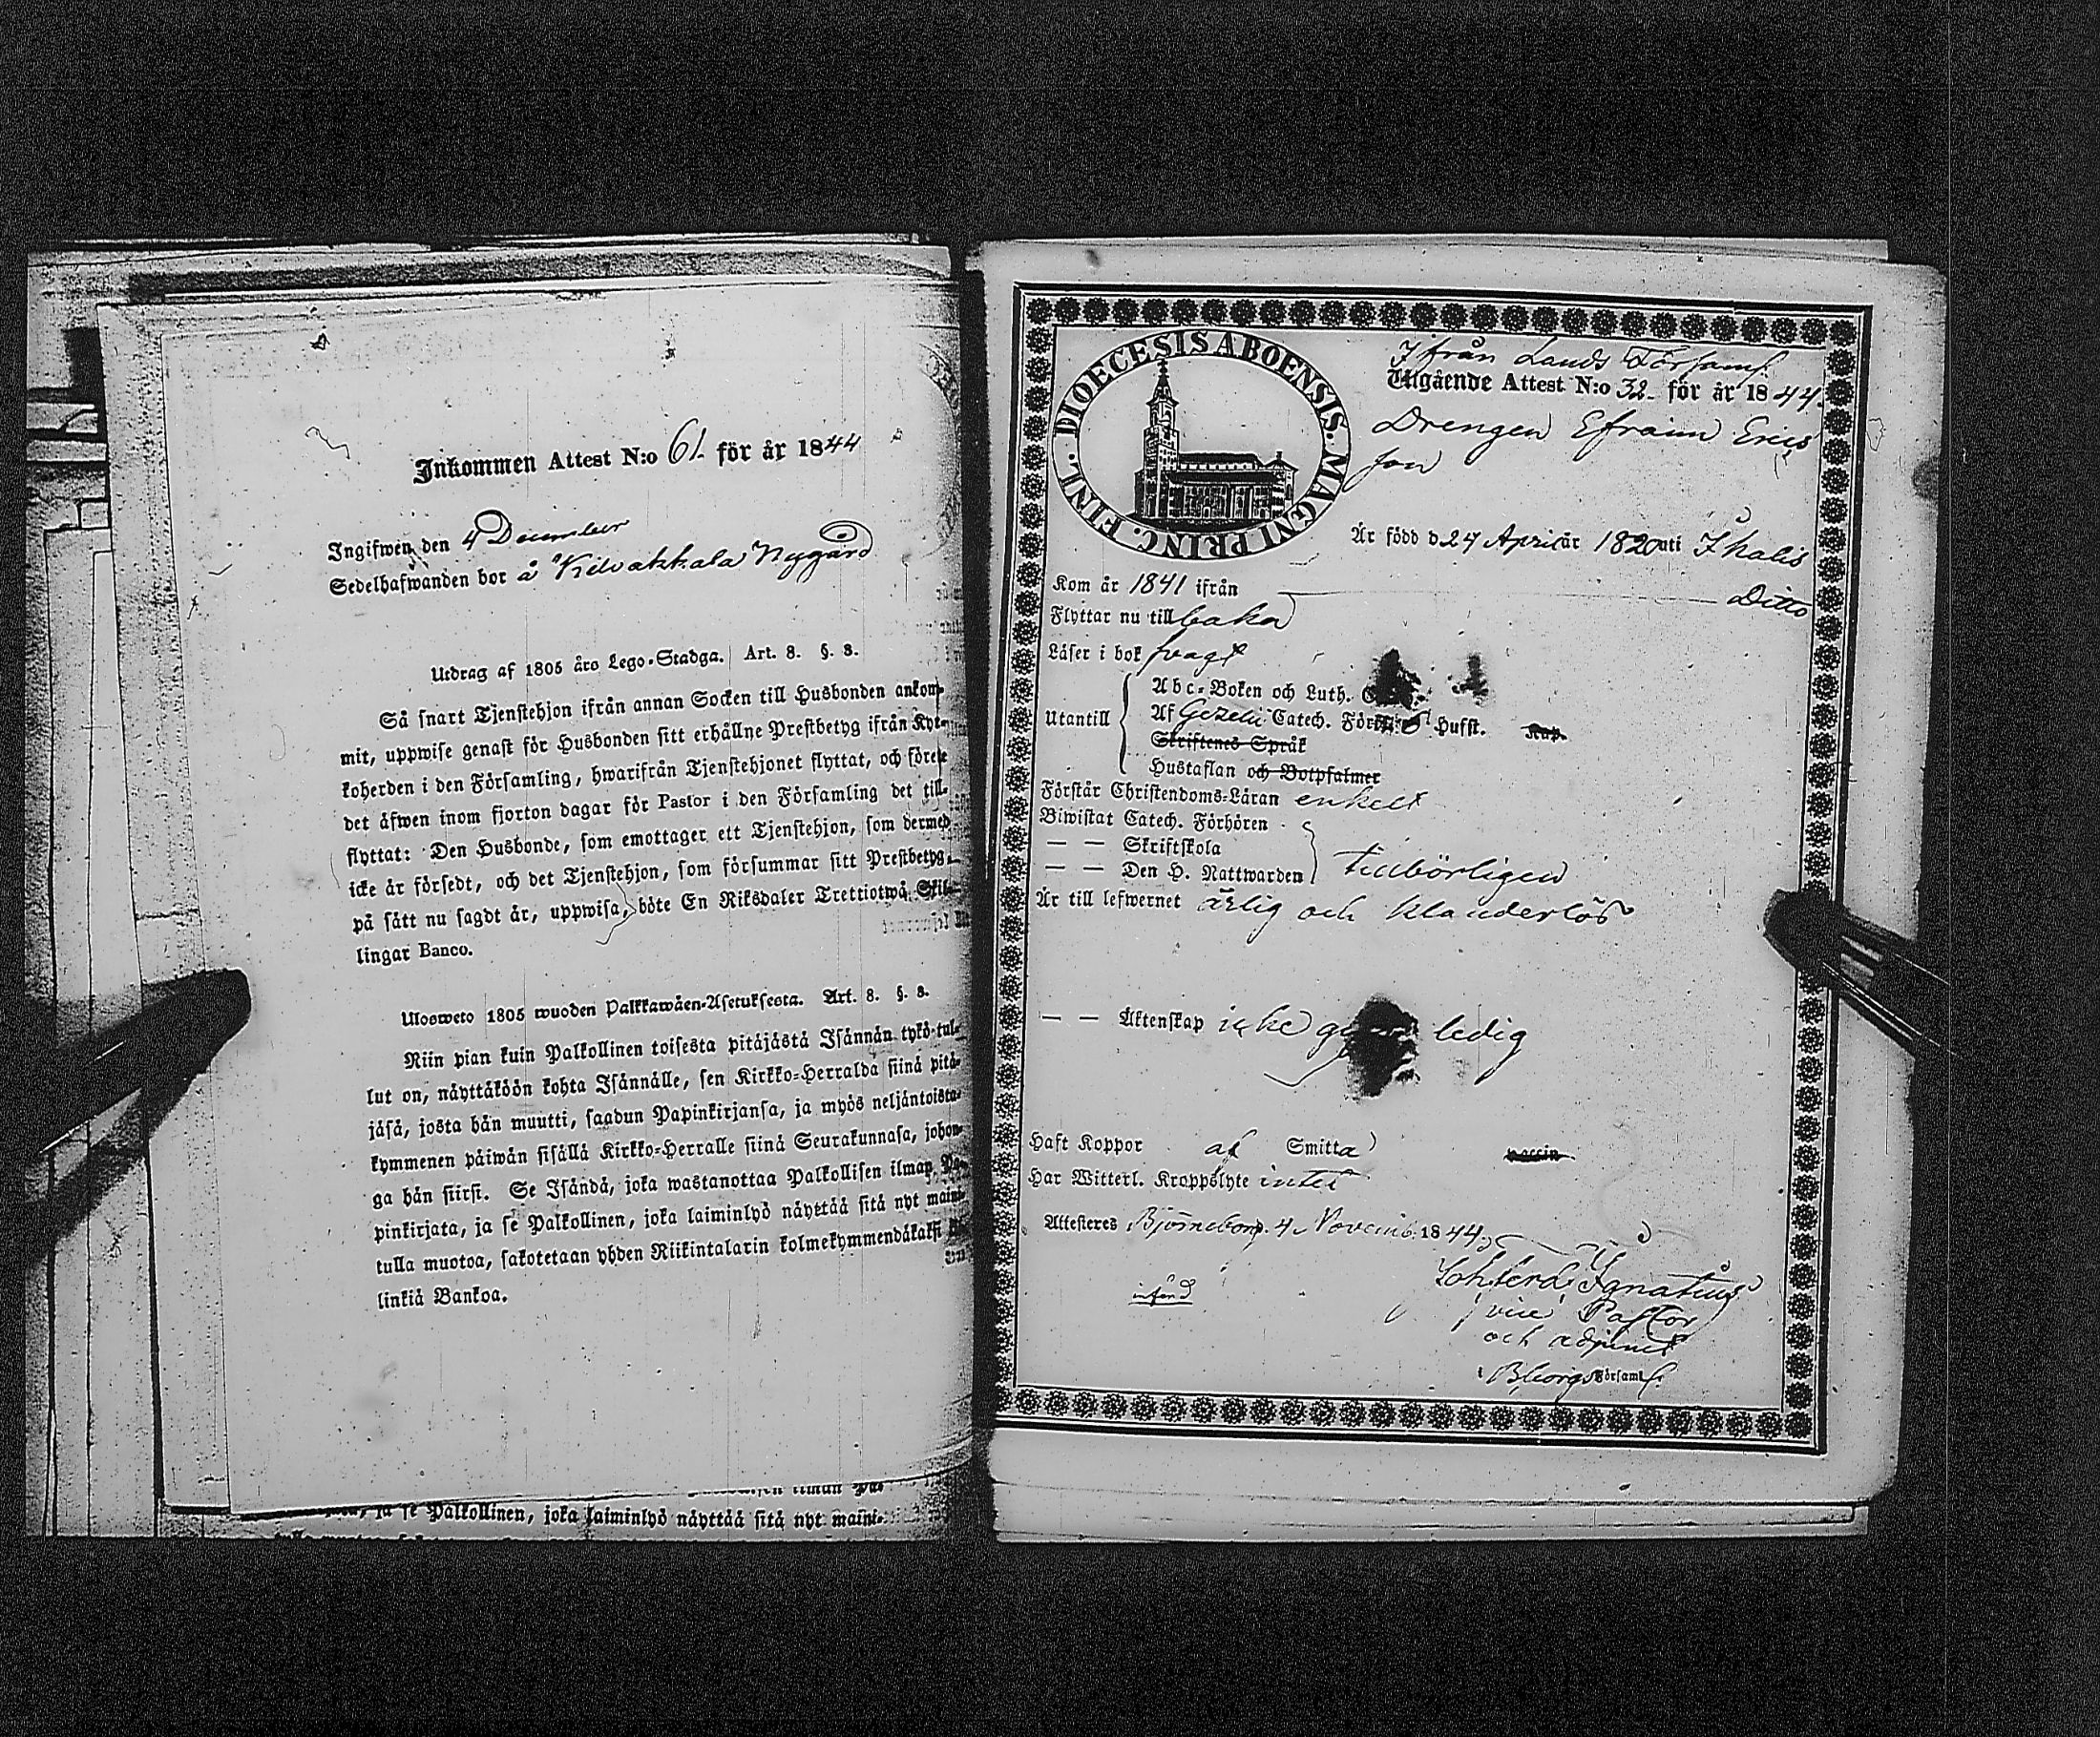 Inkommen Attest N:o 61. för år 1844
Ingifwen den 4 December
Sedelhafwanden bor å Kilvakkala Nygård
Utdrag af 1805 års Lego-Stadga. Art. 8. §. 8.
Så snart Tjenstehjon ifrån annan Socken till Husbonden ankom-
mit, uppwise genast för Husbonden sitt erhållne Prestbetyg ifrån Kyr-
koherden i den Församling, hwarifrån Tjenstehjonet flyttat, och förete
det äfwen inom fjorton dagar för Pastor i den Församling det till-
flyttat: Den Husbonde, som emottager ett Tjenstehjon, som dermed
icke är försedt, och det Tjenstehjon, som försummar sitt Prestbetyg
på sätt nu sagdt är, uppwisa, böte En Riksdaler Trettiotwå Skil-
lingar Banco.
Ulosweto 1805 wuoden Palkkawäen-Asetuksesta. Art. 8. §. 8.
Niin pian kuin Palkollinen toisesta pitäjästä Isännän tykö tul-
lut on, näyttäköön kohta Isännälle, sen Kirkko-Herralda siinä pitä-
jäsä, josta hän muutti, saadun Papinkirjansa, ja myös neljäntoista-
kymmenen päiwän sisällä Kirkko-Herralle siinä Seurakunnasa, johon-
ga hän siirsi. Se Isändä, joka wastanottaa Palkollisen ilman Pa-
pinkirjata, ja se Palkollinen, joka laiminlyö näyttää sitä nyt maini-
tulla muotoa, sakotetaan yhden Riikintalarin kolmekymmendäkaksi
linkiä Bankoa.
ja se Palkollinen, joka laiminlyö näyttää sitä nyt maini-
DIOECESIS ABOENSIS. MAGNI PRINC. FINL.
Ifrån Lands Församl.
Utgående Attest N:o 32 för år 1844.
Drengen Efraim Erics
son
Är född d 24 April år 1820 uti Ikalis
Kom år 1841 ifrån Ditto
Flyttar nu tillbaka
Läser i bok svagt
Abc-Boken och Luth.
Utantill Af Gezelii Catech. Hufst. Kap.
Skriftenes Språk
Hustaflan och Botpsalmer
Förstår Christendoms-Läran enkelt
Biwistat Catech. Förhören
— — Skriftskola
— — Den H. Nattwarden tillbörligen
Är till lefwernet ärlig och klanderlös
— — Äktenskap icke ledig
Haft Koppor af Smitta
Har Witterl. Kroppslyte intet
Attesteras Björneborg. 4 Novemb. 1844.
infönd
Ignatius
vice Pastor
och adjunct
i Bjborgs Församl.